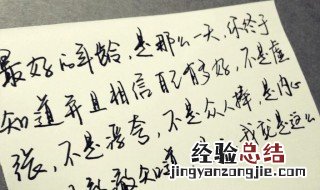 最好的年龄，是那么一天，你终于
知道并且相信自己有多好，不是虚
张，不是浮夸，不是众人捧，是内心
知道 我就是这么
经验总结
www.jingyanzongjie.com